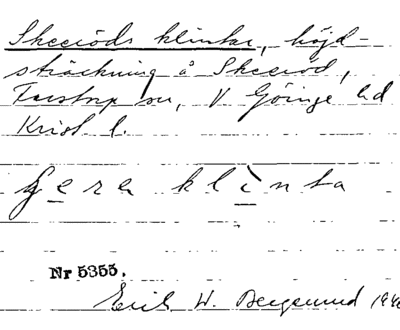 Skeeröds klintar, höjd-
sträckning å Skeeröd,
Farstorp sn, V Göinge hd
Krist l.
Gera klinta
Nr 5355.
Erik W. Bergsund 1940